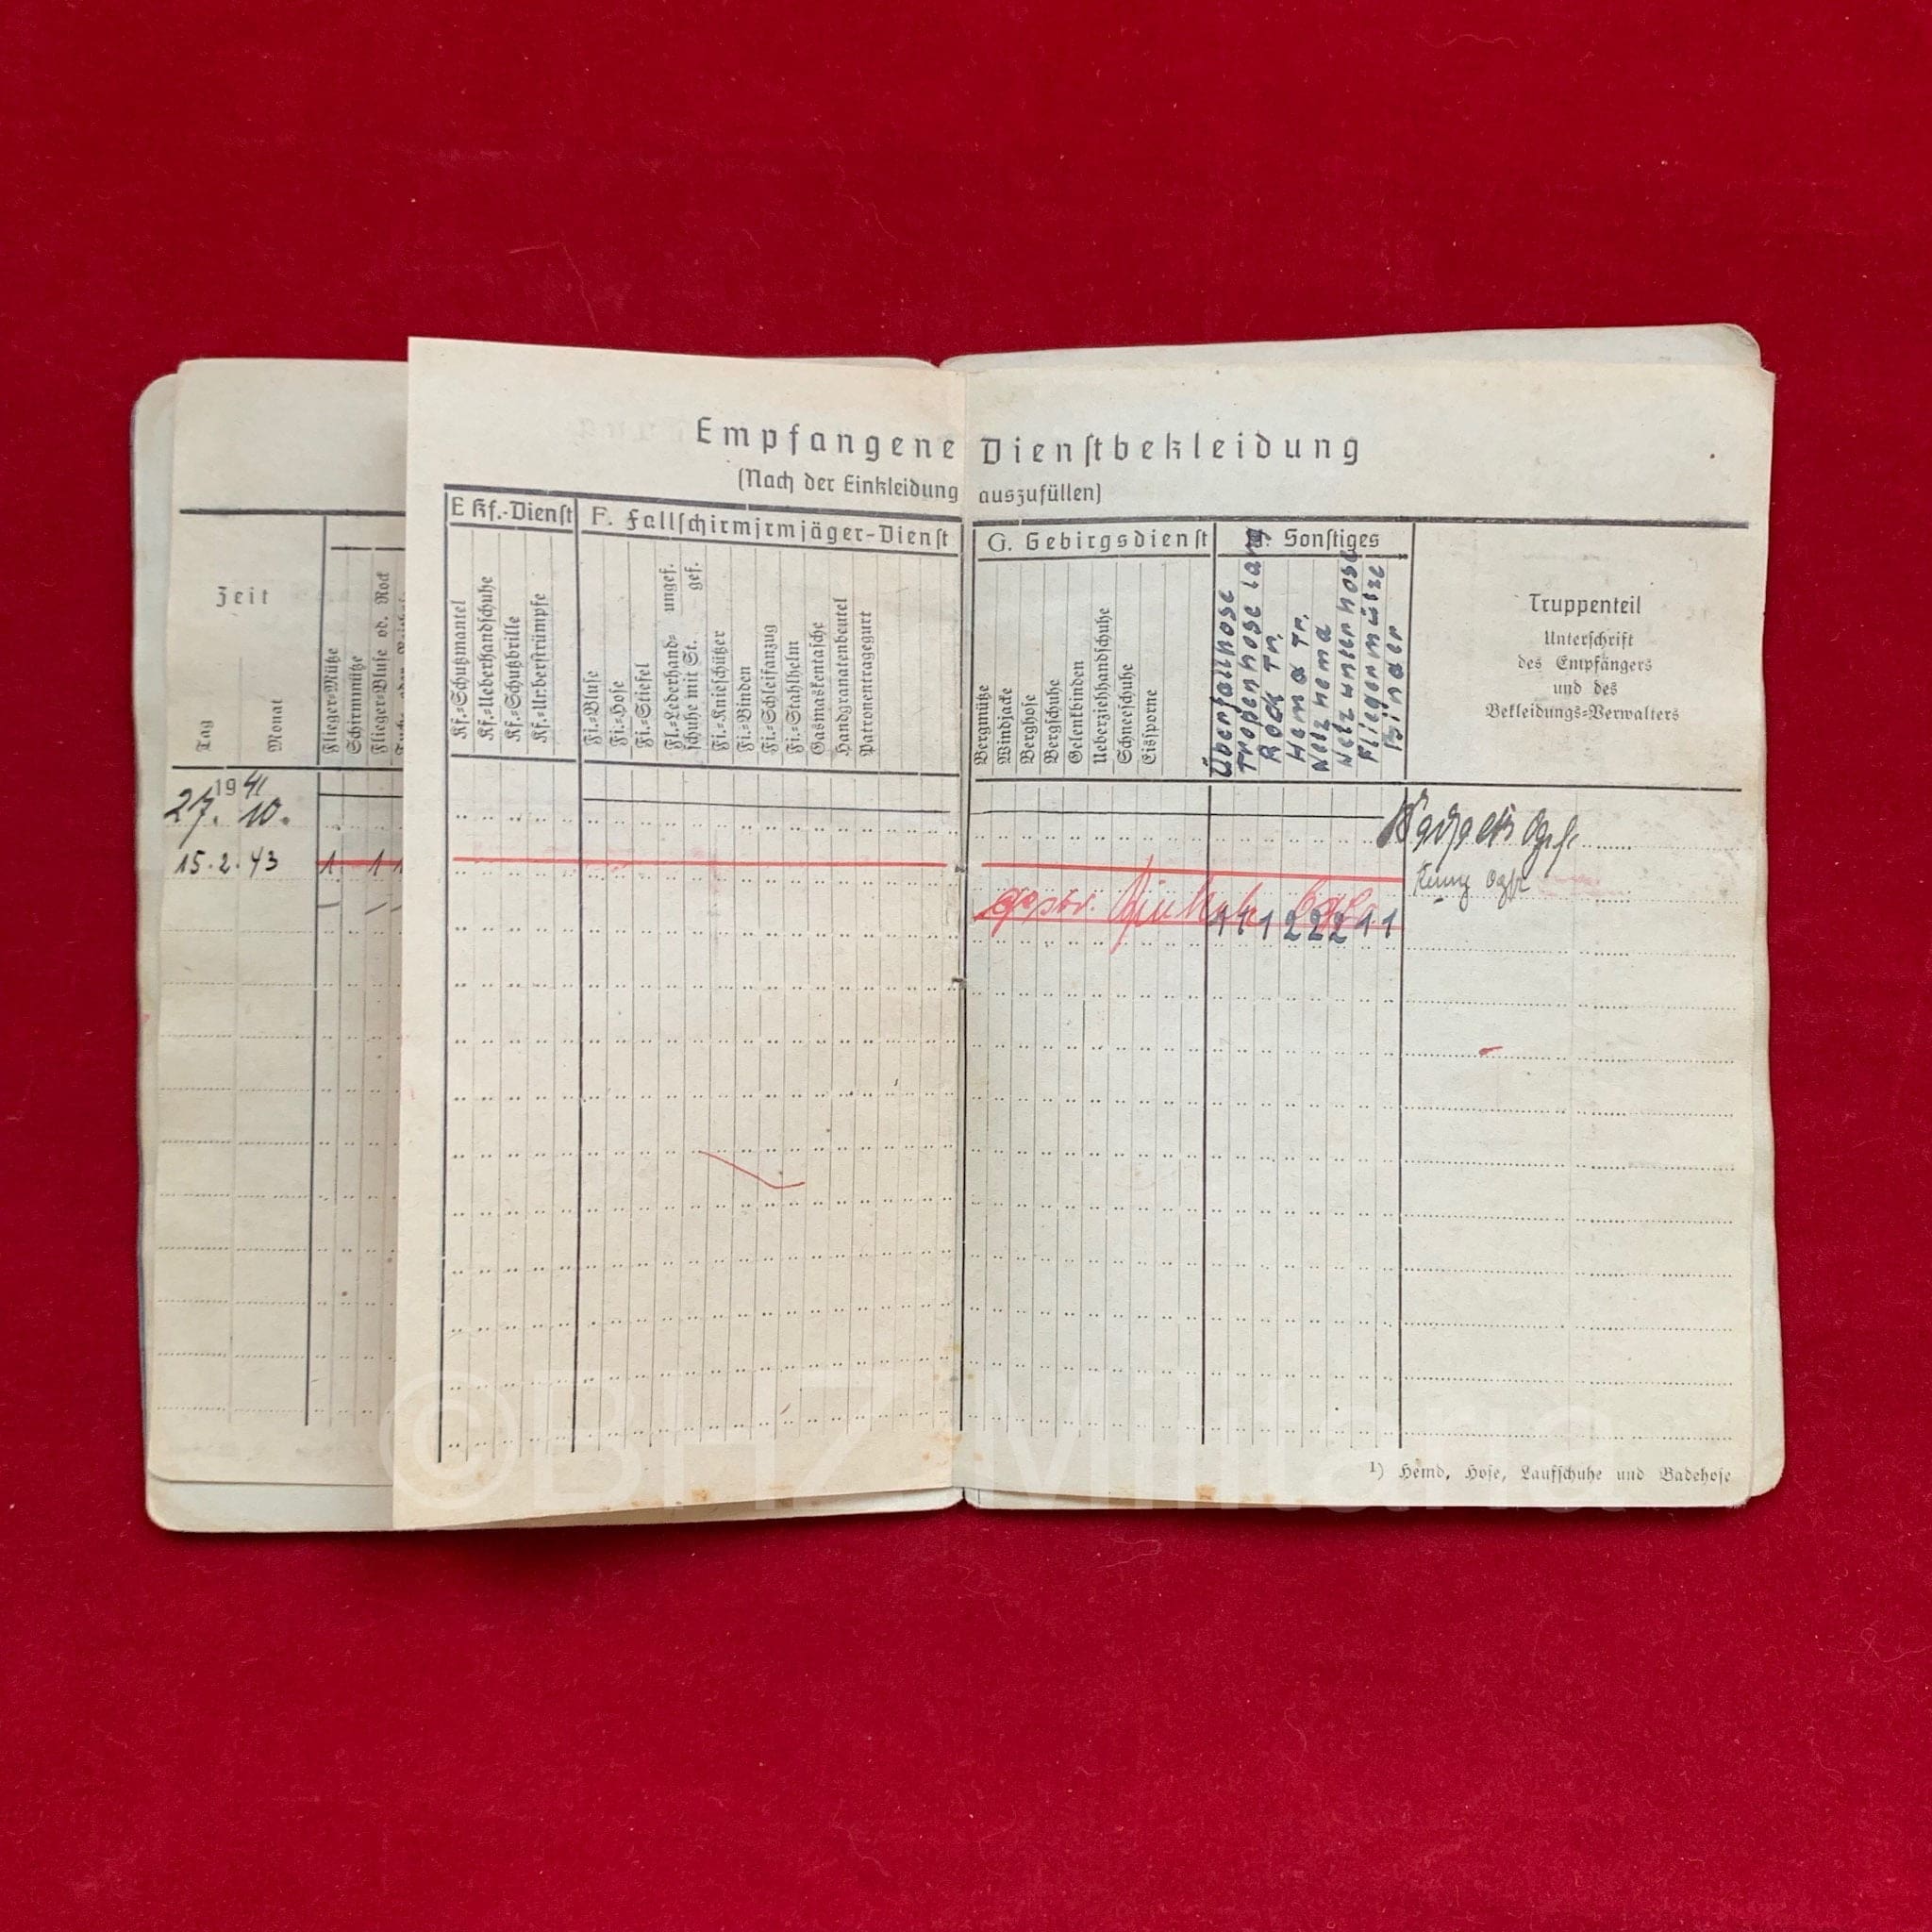 Empfangene Dienstbekleidung
(Nach der Einkleidung auszufüllen)
Zeit
Tag
Monat
Flieger-Mütze
Schirmmütze
Flieger-Bluse od. Rock
E Kf.-Dienst
Kf.-Schutzmantel
Kf.-Ueberhandschuhe
Kf.-Schutzbrille
F. Fallschirmjrmjäger-Dienst
Fj.-Bluse
Fj.-Hose
Fj.-Stiefel
Fl.-Lederhand- ungef.
schuhe mit St. gef.
Fj.-Knieschützer
Fj.-Binden
Fj.-Schleifanzug
Fj.-Stahlhelm
Gasmaskentasche
Handgranatenbeutel
Patronentragegurt
G. Gebirgsdienst
Bergmütze
Windjacke
Berghose
Bergschuhe
Gelenkbinden
Ueberziehhandschuhe
Schneeschuhe
Eissporne
Sonstiges
Überfallhose
Tropenhose lang
Rock Tr.
Hemd Tr.
Netzhemd
Netzunterhose
Fliegermütze
Binder
Truppenteil
Unterschrift
des Empfängers
und des
Bekleidungs-Verwalters
1941
27. 10.
15. 2. 43 1 1 1
1 1 1 2 2 2 1 1
1) Hemd, Hose, Laufschuhe und Badehose
©BHZ Militaria